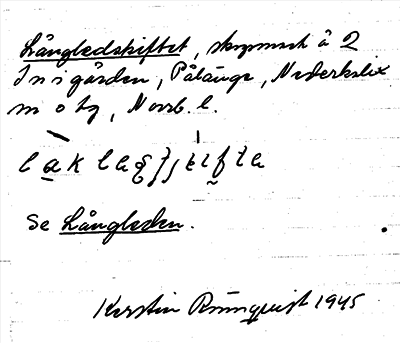 Långledskiftet, skogsmark å 2
Innigården, Pålänge, Nederkalix
sn o tg, Norrb. l.
Se Långleden.
Kerstin Rönnqvist 1945